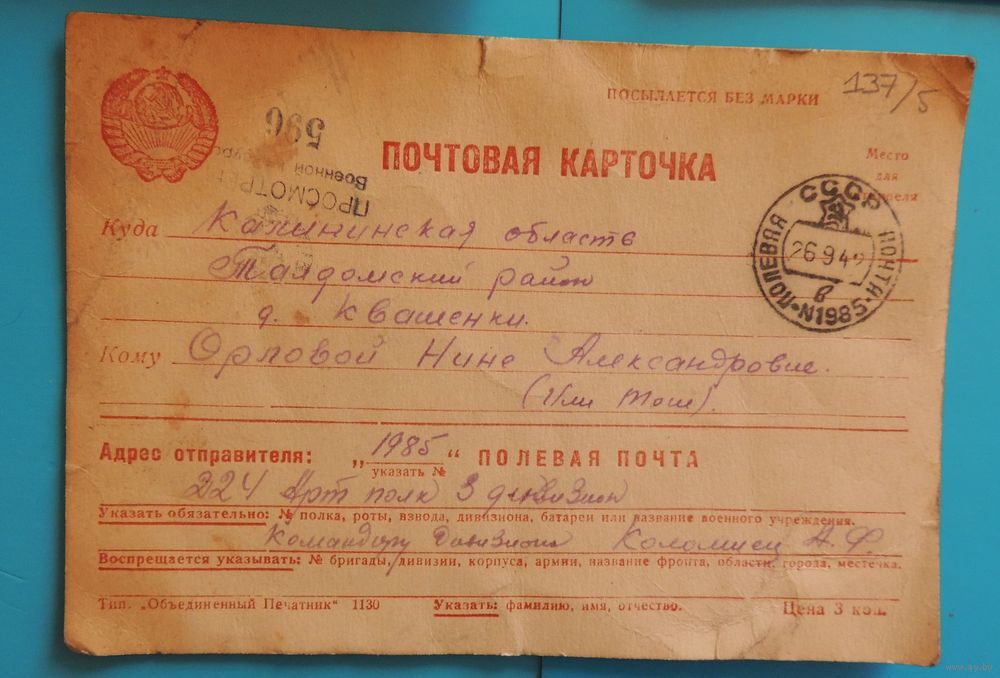 137/5
ПОСЫЛАЕТСЯ БЕЗ МАРКИ
596
ПОЧТОВАЯ КАРТОЧКА
Место
для
ПРОСМОТРЕ
Военной
СССР
ПОЛЕВАЯ ПОЧТА
26 9 42
в
N1985
Куда Калининская область
Талдомский район
д. Квашенки.
Кому Орловой Нине Александровне.
(Или Тоне).
Адрес отправителя: „ 1985 “ ПОЛЕВАЯ ПОЧТА
указать №
224 Арт полк 3 дивизион
Указать обязательно: № полка, роты, взвода, дивизиона, батареи или название военного учреждения.
Командиру Дивизиона Коломиец А. Ф.
Воспрещается указывать: № бригады, дивизии, корпуса, армии, название фронта, области, города, местечка.
Тип. „Объединенный Печатник“ 1130 Указать: фамилию, имя, отчество. Цена 3 коп.
www.ay.by